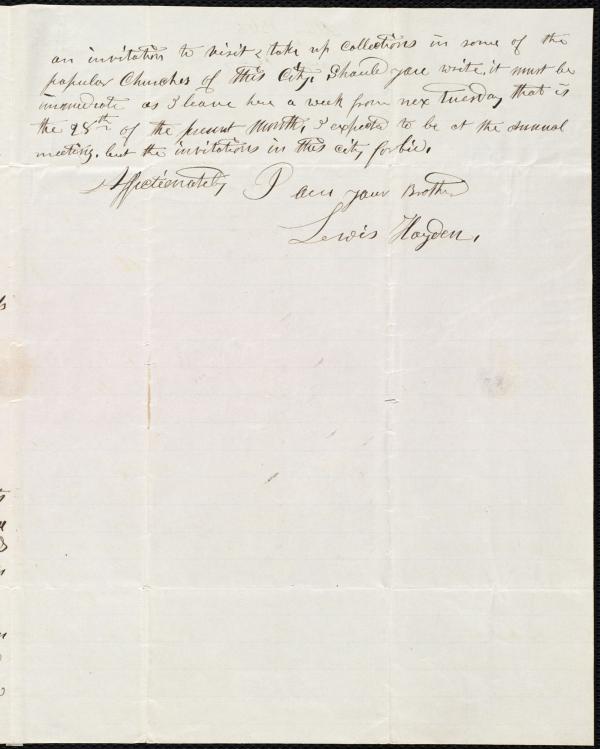 an invitation to visit & take up collections in some of the
popular Churches of this City. Should you write, it must be
immediate as I leave here a week from nex Tuesday that is
the 28th of the present Month, I expected to be at the annual
meeting. but the invitations in this city forbid.
Affectionately I am your Brother
Lewis Hayden.